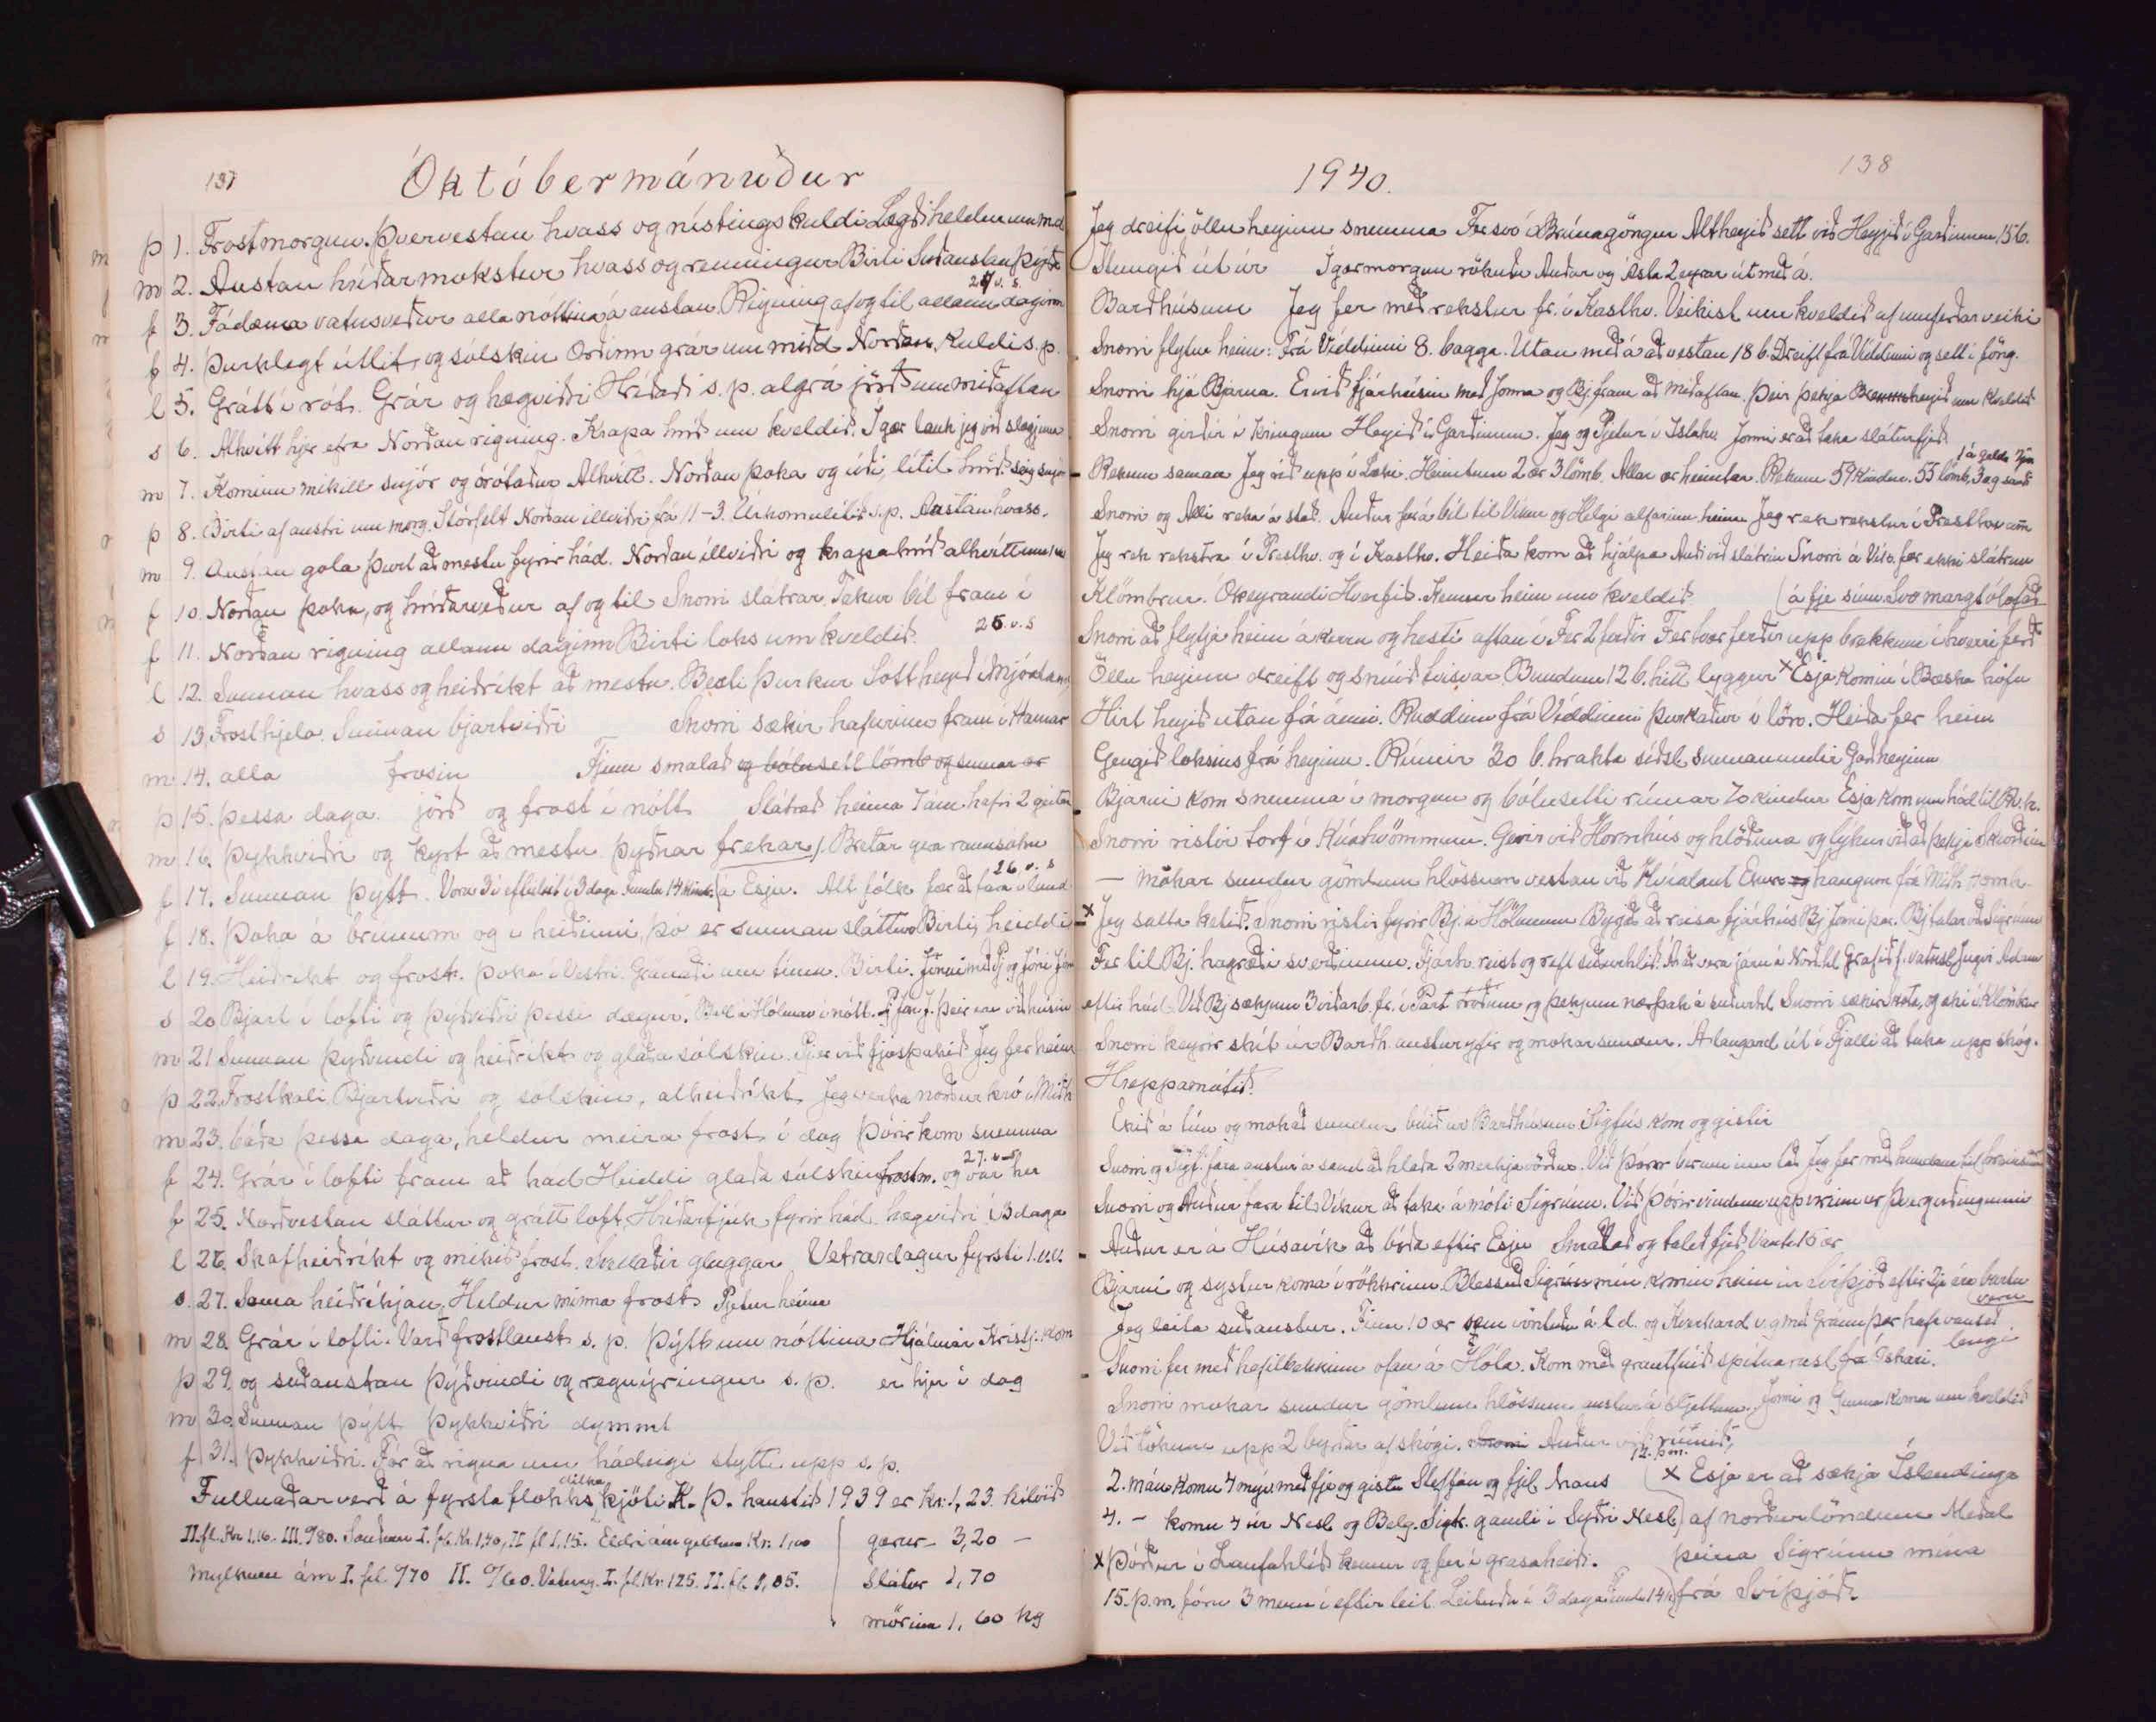 137
Októbermánuður
þ 1. Frostmorgun. Þvervestan hvass og nístingskuldi Lægði heldur um md
m 2. Austan hríðarmokstur hvass og renningur Birti Suðaustan þýða
24 v. s.
f 3. Fádæma vatnsveður alla nóttina á austan Rigning af og til allann daginn
f 4. Þurklegt útlit, og sólskin Orðinn grár um miðd Norðan, Kuldi s. p.
l 5. Grátt í rót. Grár og hægviðri Hríðaði s. p. algrá jörð um miðaftan
s 6. Alhvítt hjer efra Norðan rigning. Krapa hríð um kveldið. Í gær lauk jeg við slægjuna
m 7. Kominn mikill snjór og órótaður Alhvítt. Norðan þoka og úði, lítil hríð seig snjór
þ 8. Birti af austri um morg. Stórfelt Norðan illviðri frá 11-3. Úrkomulítið s. p. Austan hvass.
m 9. Austan gola þurt að mestu fyrir hád. Norðan illviðri og krapahríð alhvítt um
f 10. Norðan þoka, og hríðarveður af og til Snorri slátrar. Tekur bíl fram í
f 11. Norðan rigning allann daginn Birti loks um kveldið. 25. v. s
l 12. Sunnan hvass og heiðríkt að mestu. Besti þurkur Sótt heyið í Mjóadal
s 13 Frosthjela. Sunnan bjartviðri Snorri sækir hafurinn fram í Hamar
m 14. alla frosin Fjenu smalað og bólusett lömb og sumar ær
þ 15. þessa daga. jörð og frost í nótt. Slátrað heima 7 ám. hafri 2 geitu
m 16. Þykkviðri og kyrt að mestu þyðnar frekar). Bretar gera rannsókn
26 v. s
f 17. Sunnan þýtt. Voru 3 í eftirleit í 3 daga fundu 14 kind. (á Esju. Alt fólk fær að fara í land
f 18. Þoka á brúnum og í heiðinni, þó er sunnan sláttur Birti, heiddi
l 19. Heiðríkt og frost. Þoka í Vestri. Gránaði um tíma. Birti. Jónni með Bj og Jóni
s 20 Bjart í lofti og þýðviðri þessi dægur. Bíll í Hólmav í nótt. Þeir eru við húsin
m 21 Sunnan þýðvindi og heiðríkt og glaða sólskin. Gjer við fjósþakið Jeg fer heim
þ 22. Frostkali Bjartviðri og sólskin, alheiðríkt. Jeg verka norður kró í Miðh
m 23. báða þessa daga, heldur meira frost í dag Þórir kom snemma
27. v s
f 24. Grár í lofti fram að hád Heiddi glaða sólskin frostm. og var her
f 25. Norðvestan sláttur og grátt loft, Hríðarfjúk fyrir hád. hægviðri í 3 daga
l 26. Skafheiðríkt og mikið frost. Skellaðir gluggar Vetrardagur fyrsti 1. v. v.
s. 27. Sama heiðríkjan, Heldur minna frost Pjetur heima
m 28. Grár í lofti. Varð frostlaust s. p. Þýtt um nóttina Hjálmar Kristj. kom
þ 29. og suðaustan þýðvindi og regnýringur s. p. er hjer í dag
m 30. Sunnan þýtt þykkviðri dymmt
f 31. Þykkviðri. Fór að rigna um hádegi stytti upp s. p.
Fullnaðarverð á fyrsta flokks dilkakjöti K. Þ. haustið 1939 er kr. 1,23. kílóið
II. fl. Kr. 1,16. III. 9/80. Sauðum I. fl. Kr. 1,40, II fl 1,15. Eldri ám geldum Kr. 1,00
mylkum ám I. fl. 9/70 II. 9/60. Veturg. I. fl. Kr. 125. II. fl. 1,05.
gærur 3,20 -
Slátur 1,70
mörinn 1,60 kg
1940.
138
Jeg dreifi öllu heyinu snemma Fer svo í Brúnagöngur Alt heyið sett við Heyið í Garðinum 156.
Stungið út úr Í gærmorgun rökuðu Auður og Ásta 2 eyrar út með á.
Barðhúsum Jeg fer með rekstur fr. í Kasthv. Veikist um kveldið af umferðar veiki
Snorri flytur heim: Frá Víddinni 8. bagga. Utan með á að vestan 18 b. Dreift frá Víddinni og sett í föng.
Snorri hjá Bjarna. Er við fjárhúsin með Jonna og Bj. fram að miðaftan. Þeir þekja heyið um kveldið
Snorri girðir í kringum Heyið í Garðinum. Jeg og Pjetur í Íslahv. Jonni er að taka sláturfjeð
Rekum saman Jeg ríð upp í Læki. Heimtum 2 ær 3 lömb. Allar ær heimtar. Rekum 59 kindur. 55 lömb, 3 ag sauð
Snorri og Alli reka á stað. Auður fer á bíl til Víkur og Helgi alfarinn heim Jeg rek rekstur í Presthv
Jeg rek rekstra í Presthv. og í Kasthv. Heiða kom að hjálpa Auði við slátrin Snorri á Vík. fær ekki slátrun
Klömbrur. Ókeyrandi Hverfið. Kemur heim um kveldið (á fje sínu. Svo margt ólofað
Snorri að flytja heim á kerru og hesti aftan í Fer 2 ferðir Fer tvær ferðir upp brekkuna í hverri ferð
Öllu heyinu dreift og snúið tvisvar Bundum 12 b. hitt lyggur × Esja komin í Bæska höfn
Hirt heyið utan frá ánni. Ruddinn frá Víddinni þurkaður í lörv. Heiða fer heim
Gengið loksins frá heyinu. Rúmir 30 b. hrakta síðsl sunnanundir Garðheyinu
Bjarni kom snemma í morgun og bólusetti rúmar 70 kindur Esja kom um hád til Rv.k.
Snorri ristir torf í Kúahvömmum. Gerir við Hornhús og hlöðuna og lykur við að þekja
— mokar sundur gömlum hlössum vestan við Kvíalaut
× Jeg salta ketið. Snorri ristir fyrir Bj. í Hólmum Byggð að reisa fjárhús Bj Jonni þar. Bj talar við Sigrúnu
Fer til Bj. hagræði sverðinum. Fjárh. reist og reft suðurhlið.
eftir hád. Við Bj sækjum 3 viðarb. fr. í Part tróðum og þekjum nærþak á suðurhl Snorri sækir
Snorri keyrir skít úr Barðh. austur yfir og mokar sundur. Á laugard út í Fjalli að taka upp skóg.
Hreppamótið.
Ekið á tún og mokað sundur búið úr Barðhúsum Sigfús kom og gistir
Snorri og Sigf. fara austur á sand að hlaða 2 merkja vörður. Við Þórir berum inn
Snorri og Auður fara til Víkur að taka á móti Sigrúnu. Við Þórir vindum upp vírinn úr þvergirðingunni
Auður er á Húsavík að bíða eftir Esju Smalað og talið fjeð, Vantar 15 ær
Bjarni og systur koma í rökkrinu. Blessuð Sigrún mín komin heim úr Svíþjóð eftir 2ja ára burtu
veru
Jeg leita suðaustur. Finn 10 ær sem vöntuðu á l d. og Kverkard v. g með Gránu þær hafa vantað
lengi
Snorri fer með hefilbekkinn ofan á Hóla. Kom með grautfúið spítnarusl frá Óskari.
Snorri mokar sundur gömlum hlössum austur á sljettum. Jonni og Gunna koma um kveldið
Við tökum upp 2 byrðar af skógi. Auður við rúmið,
2. mán. komu 4 mýv. með fje og gistu Steffán og fjel. hans
12. þ.m.
(× Esja er að sækja Íslendinga
4. - komu 4 úr Nesl og Belg. Sigtr. gamli í Syðri Nesl) af norðurlöndum Meðal
× Þórður í Laufahlíð kemur og fer í grasaheiði. þeirra Sigrúnu mína
15. þ. m. fóru 3 menn í eftirleit. Leituðu í 3 daga fundu 14 k) frá Svíþjóð.